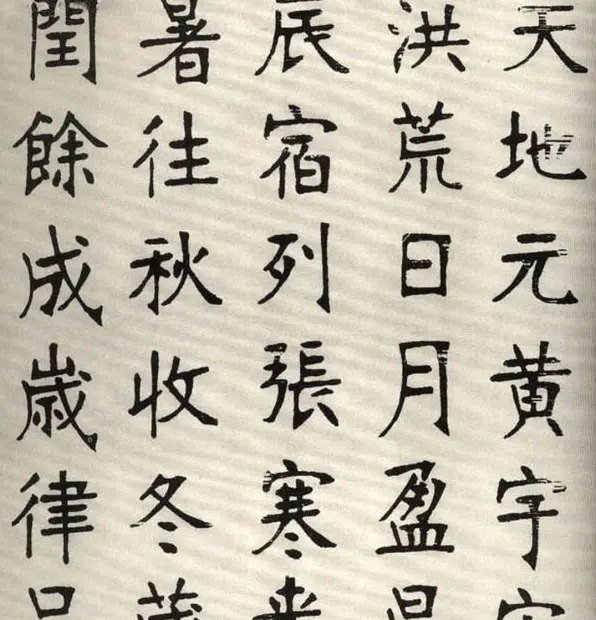 天地元黄宇
洪荒日月盈
辰宿列張寒
暑往秋收冬
閏餘成歲律